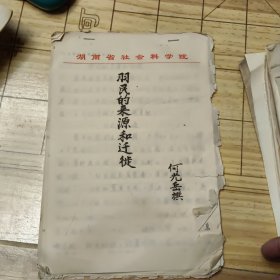 湖南省社会科学院
羽民的来源和迁徙
何光岳撰